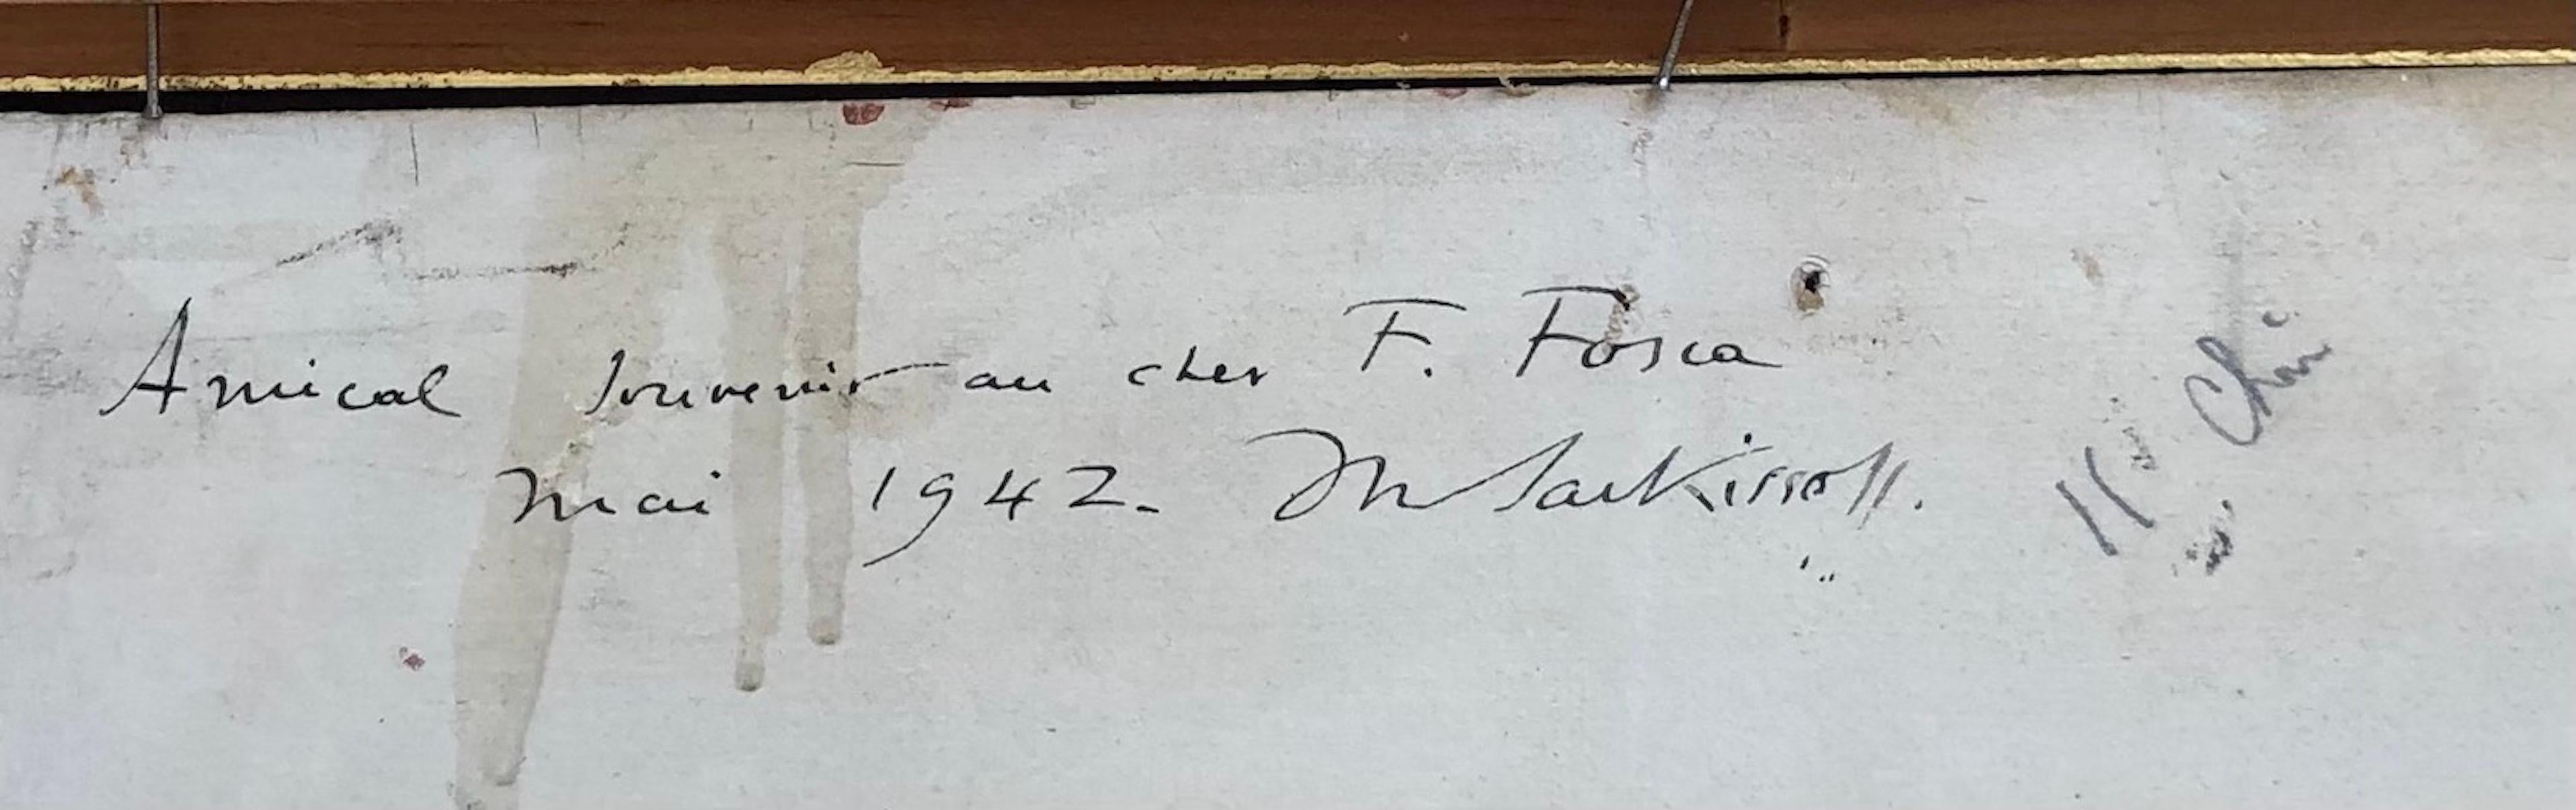 Amical souvenir au cher F. Fosca
Mai 1942. M Sarkissoff.